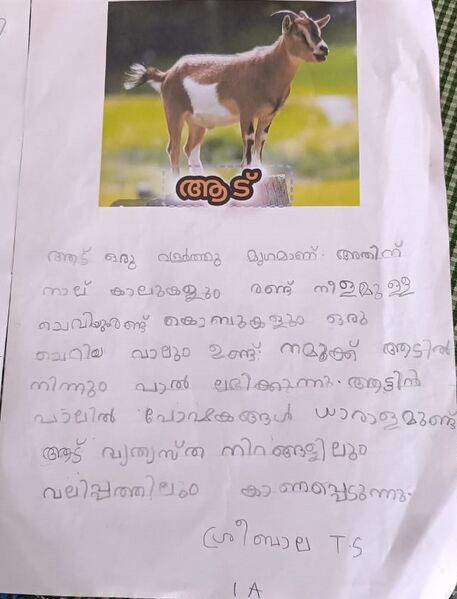 ആട്
ആട് ഒരു വളർത്തു മൃഗമാണ്. അതിന്
നാല് കാലുകളും രണ്ട് നീളമുള്ള
ചെവിയുംരണ്ട് കൊമ്പുകളും ഒരു
ചെറിയ വാലും ഉണ്ട്. നമുക്ക് ആട്ടിൽ
നിന്നും പാൽ ലഭിക്കുന്നു. ആട്ടിൻ
പാലിൽ പോഷകങ്ങൾ ധാരാളമുണ്ട്
ആട് വ്യത്യസ്ത നിറങ്ങളിലും
വലിപ്പത്തിലും കാണപ്പെടുന്നു.
ശ്രീബാല T.S
1 A